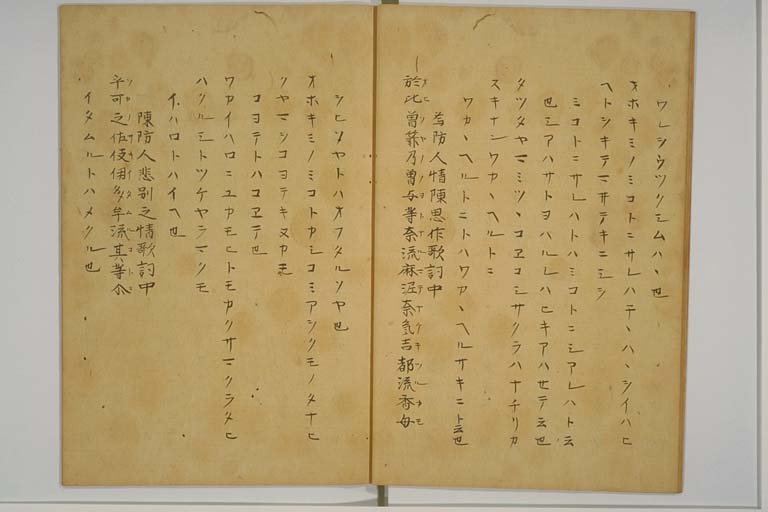 ワレシヲツクシムハヽ也
オホキミノミコトニサレハテヽハヽシイハヒ
ヘトシキテマヰテキニシヲ
ミコトニサレハトハミコトニシアレハト云
也シアハサトヲハルレハヒキアハセテ云也
タツタヤマミツヽコエコシサクラハナチリカ
スキナンワカヽヘルトニ
ワカヽヘルトニトハワカヽヘルサキニト云也
為防人情陳思作歌詞中
於比曽箭乃曽与等奈流麻泥奈気吉都流香母
シヒソヤトハオフタルソヤ也
オホキミノミコトカシコミアシクモノタナヒ
ソヤマシコヨテキヌカモ
コヨテトハコヱテ也
ワカイハロニユカモヒトモカクサマクラタヒ
ハクルシトツケヤラマクモ
イハロトハイヘ也
陳防人悲別之情歌詞中
乎可之佐伎伊多牟流其等尓
イタムルトハメクル也